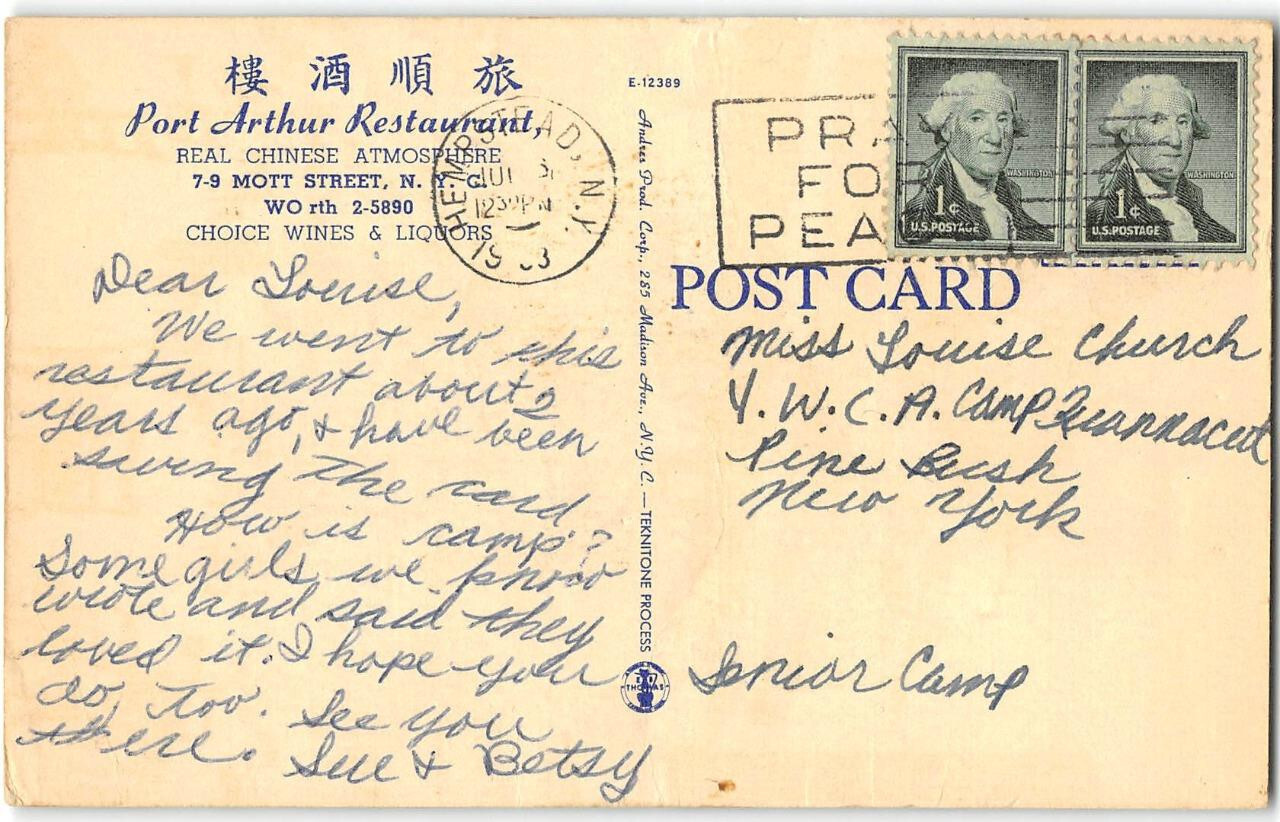 樓酒順旅
Port Arthur Restaurant,
REAL CHINESE ATMOSPHERE
7-9 MOTT STREET, N. Y. C.
WO rth 2-5890
CHOICE WINES & LIQUORS
HEMPSTEAD, N.Y.
1230PM
Dear Louise,
We went to this
restaurant about 2
years ago, & have been
saving the card
How is camp?
Some girls we know
wrote and said they
loved it. I hope your
do, too. See you
there. Sue & Betsy
E-12389
Andres Prod. Corp., 285 Madison Ave., N.Y.C. — TEKNITONE PROCESS
THOMAS
PRA
FOR
PEA
1¢
WASHINGTON
U.S. POSTAGE
1¢
WASHINGTON
U.S. POSTAGE
POST CARD
Miss Louise Church
Y. W. C. A. Camp Quannacut
Pine Bush
New York
Senior Camp